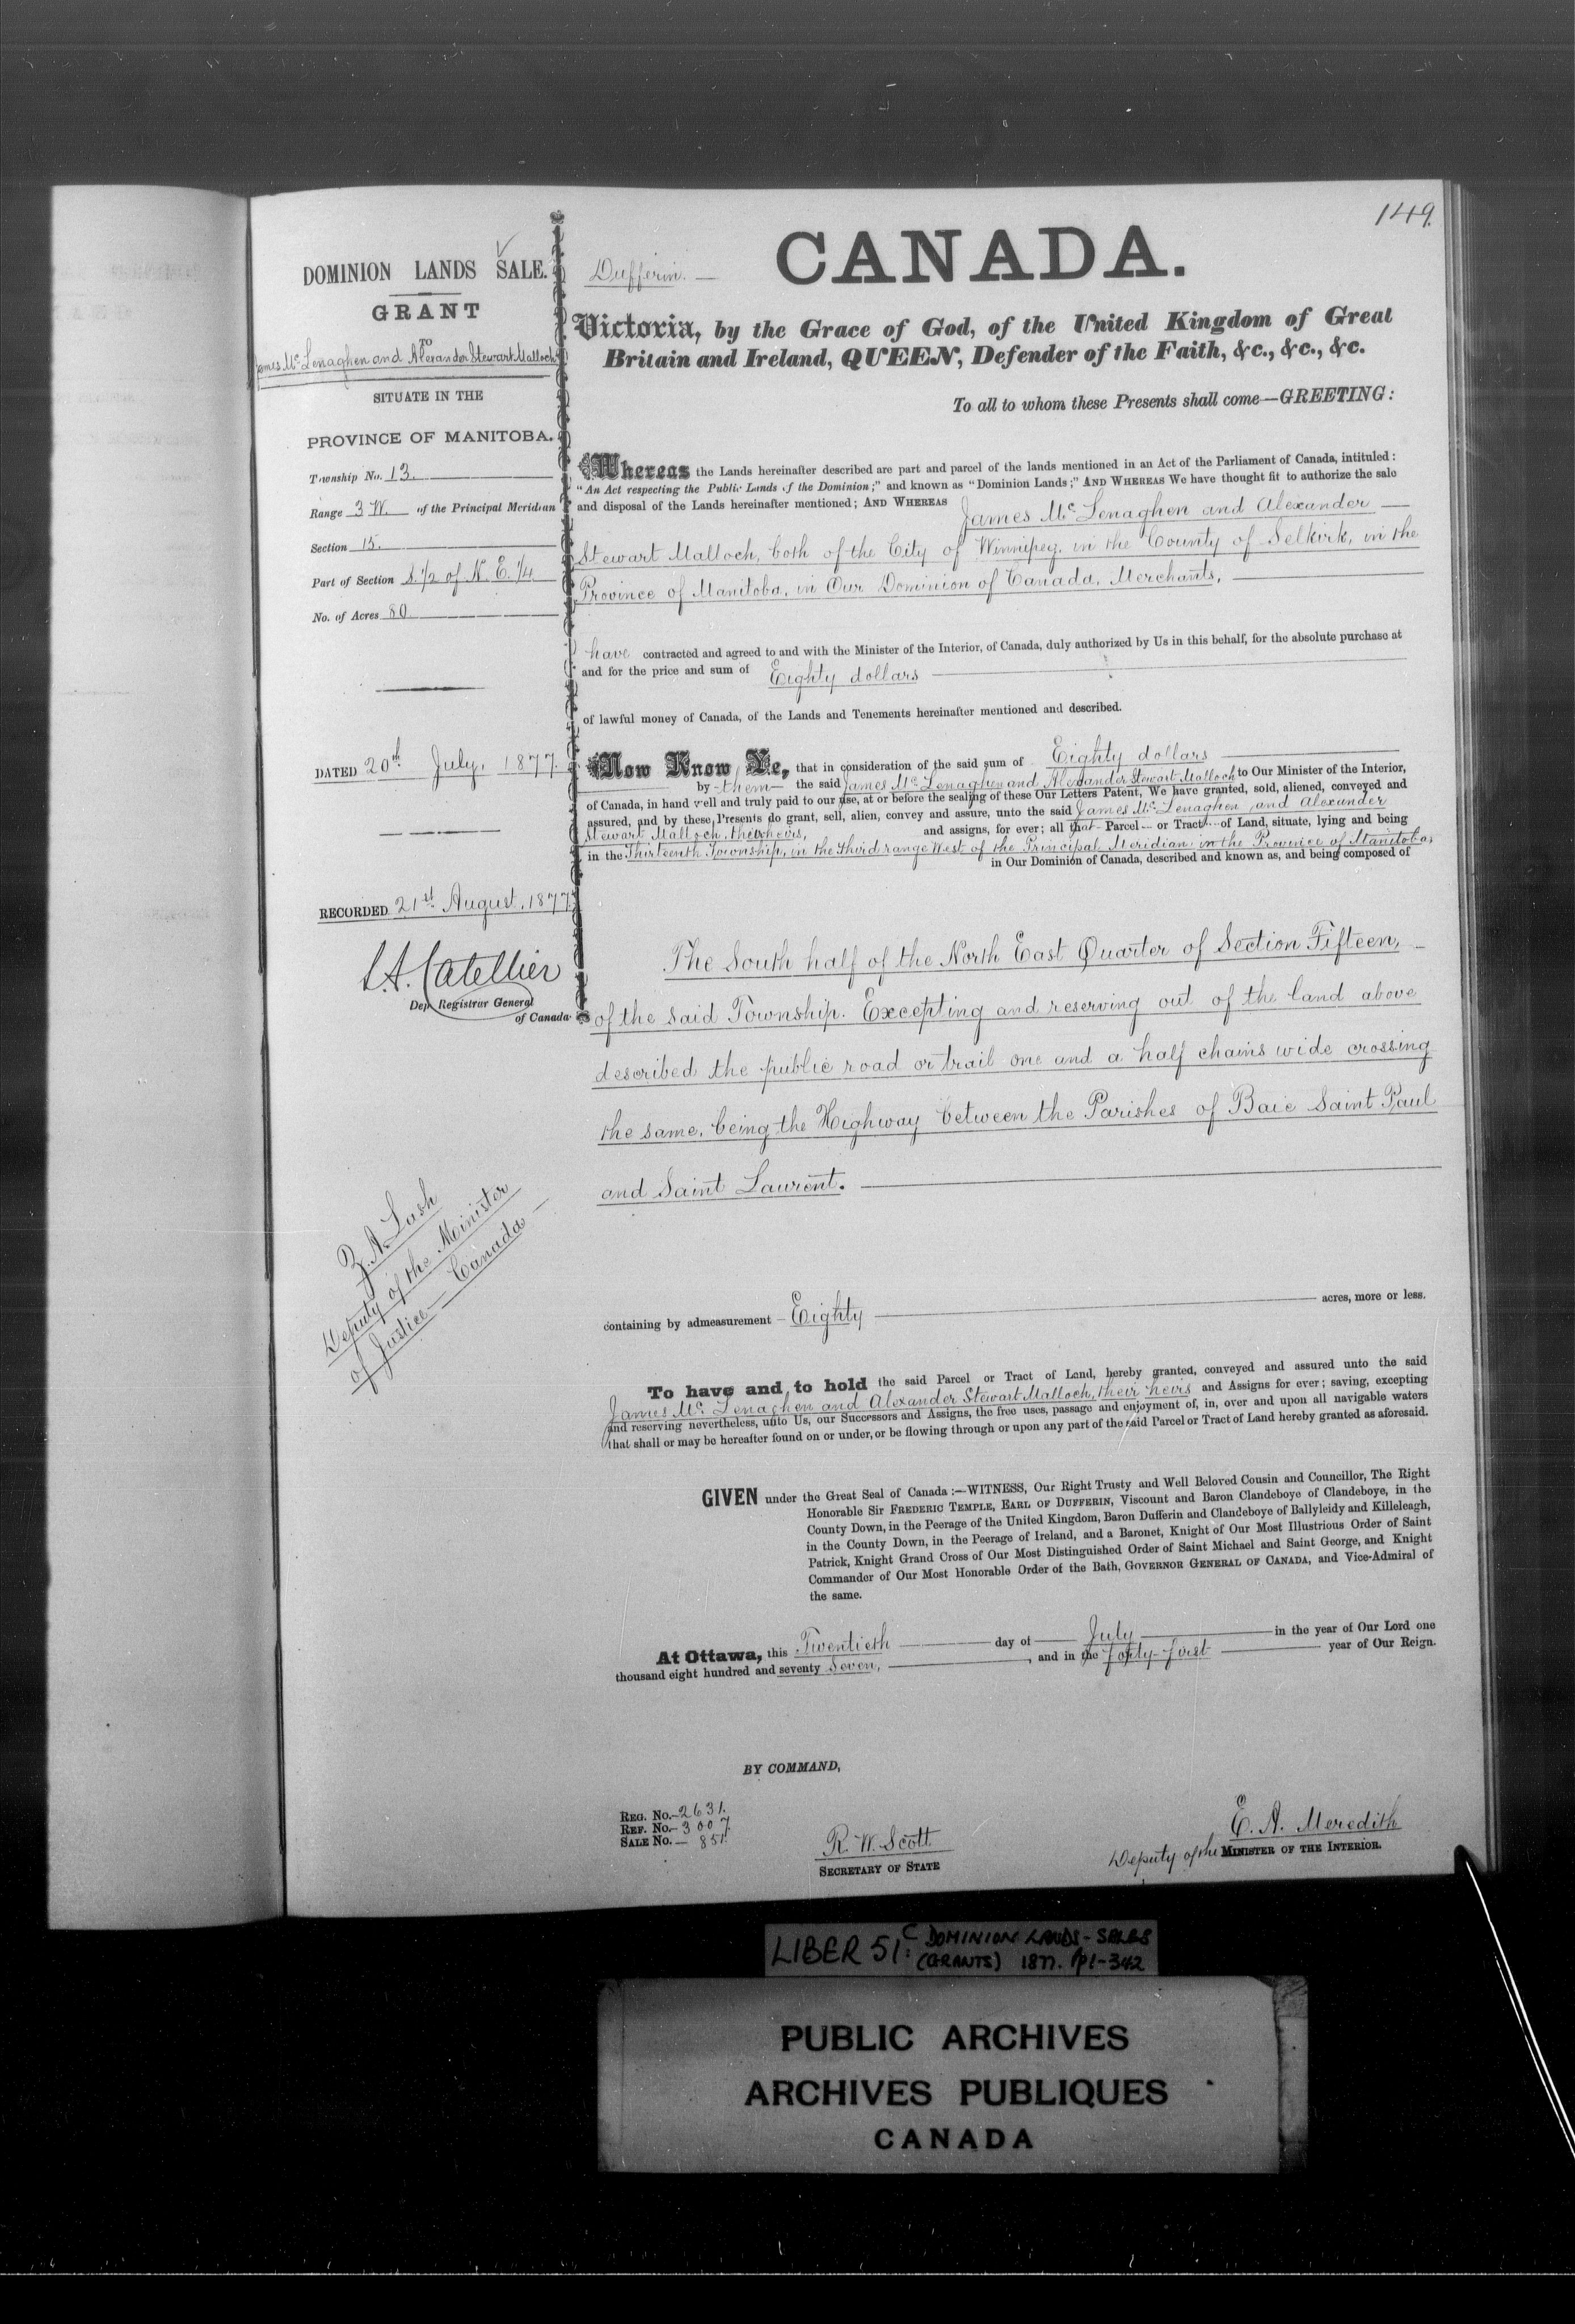 149.
DOMINION LANDS SALE.
GRANT
TO
James Mc. Lenaghen and Alexander Stewart Malloch
SITUATE IN THE
PROVINCE OF MANITOBA.
Township No. 13.
Range 3 W. of the Principal Meridian
Section 15.
Part of Section S. 1/2 of N. E. 1/4
No. of Acres 80
DATED 20th July, 1877.
RECORDED 21st August, 1877
L.A. Catellier
Dep. Registrar General
of Canada.
Z. A. Lash
Deputy of the Minister
of Justice — Canada —
Dufferin. —
CANADA.
Victoria, by the Grace of God, of the United Kingdom of Great
Britain and Ireland, QUEEN, Defender of the Faith, &c., &c., &c.
To all to whom these Presents shall come—GREETING:
Whereas the Lands hereinafter described are part and parcel of the lands mentioned in an Act of the Parliament of Canada, intituled:
"An Act respecting the Public Lands of the Dominion;" and known as "Dominion Lands;" AND WHEREAS We have thought fit to authorize the sale
and disposal of the Lands hereinafter mentioned; AND WHEREAS James Mc. Lenaghen and Alexander —
Stewart Malloch, both of the City of Winnipeg, in the County of Selkirk, in the
Province of Manitoba, in Our Dominion of Canada, Merchants, —
have contracted and agreed to and with the Minister of the Interior, of Canada, duly authorized by Us in this behalf, for the absolute purchase at
and for the price and sum of Eighty dollars —
of lawful money of Canada, of the Lands and Tenements hereinafter mentioned and described.
Now Know Ye, that in consideration of the said sum of Eighty dollars —
by them— the said James Mc. Lenaghen and Alexander Stewart Malloch to Our Minister of the Interior,
of Canada, in hand well and truly paid to our use, at or before the sealing of these Our Letters Patent, We have granted, sold, aliened, conveyed and
assured, and by these Presents do grant, sell, alien, convey and assure, unto the said James Mc. Lenaghen and Alexander
Stewart Malloch, their heirs, and assigns, for ever; all that Parcel or Tract of Land, situate, lying and being
in the Thirteenth Township, in the third range West of the Principal Meridian, in the Province of Manitoba,
in Our Dominion of Canada, described and known as, and being composed of
The South half of the North East Quarter of Section Fifteen, —
of the said Township. Excepting and reserving out of the land above
described the public road or trail one and a half chains wide crossing
the same, being the Highway between the Parishes of Baie Saint Paul
and Saint Laurent. —
containing by admeasurement — Eighty — acres, more or less.
To have and to hold the said Parcel or Tract of Land, hereby granted, conveyed and assured unto the said
James Mc. Lenaghen and Alexander Stewart Malloch, their heirs and Assigns for ever; saving, excepting
and reserving nevertheless, unto Us, our Successors and Assigns, the free uses, passage and enjoyment of, in, over and upon all navigable waters
that shall or may be hereafter found on or under, or be flowing through or upon any part of the said Parcel or Tract of Land hereby granted as aforesaid.
GIVEN under the Great Seal of Canada:—WITNESS, Our Right Trusty and Well Beloved Cousin and Councillor, The Right
Honorable Sir FREDERIC TEMPLE, EARL OF DUFFERIN, Viscount and Baron Clandeboye of Clandeboye, in the
County Down, in the Peerage of the United Kingdom, Baron Dufferin and Clandeboye of Ballyleidy and Killeleagh,
in the County Down, in the Peerage of Ireland, and a Baronet, Knight of Our Most Illustrious Order of Saint
Patrick, Knight Grand Cross of Our Most Distinguished Order of Saint Michael and Saint George, and Knight
Commander of Our Most Honorable Order of the Bath, GOVERNOR GENERAL OF CANADA, and Vice-Admiral of
the same.
At Ottawa, this Twentieth — day of — July — in the year of Our Lord one
thousand eight hundred and seventy Seven, —, and in the forty-first — year of Our Reign.
BY COMMAND,
REG. No.—2631.
REF. No.—3007.
SALE No.— 851.
R. W. Scott
SECRETARY OF STATE
E. A. Meredith
Deputy of the MINISTER OF THE INTERIOR.
LIBER 51C: DOMINION LANDS - SALES
(GRANTS) 1877. pp1-342
PUBLIC ARCHIVES
ARCHIVES PUBLIQUES
CANADA